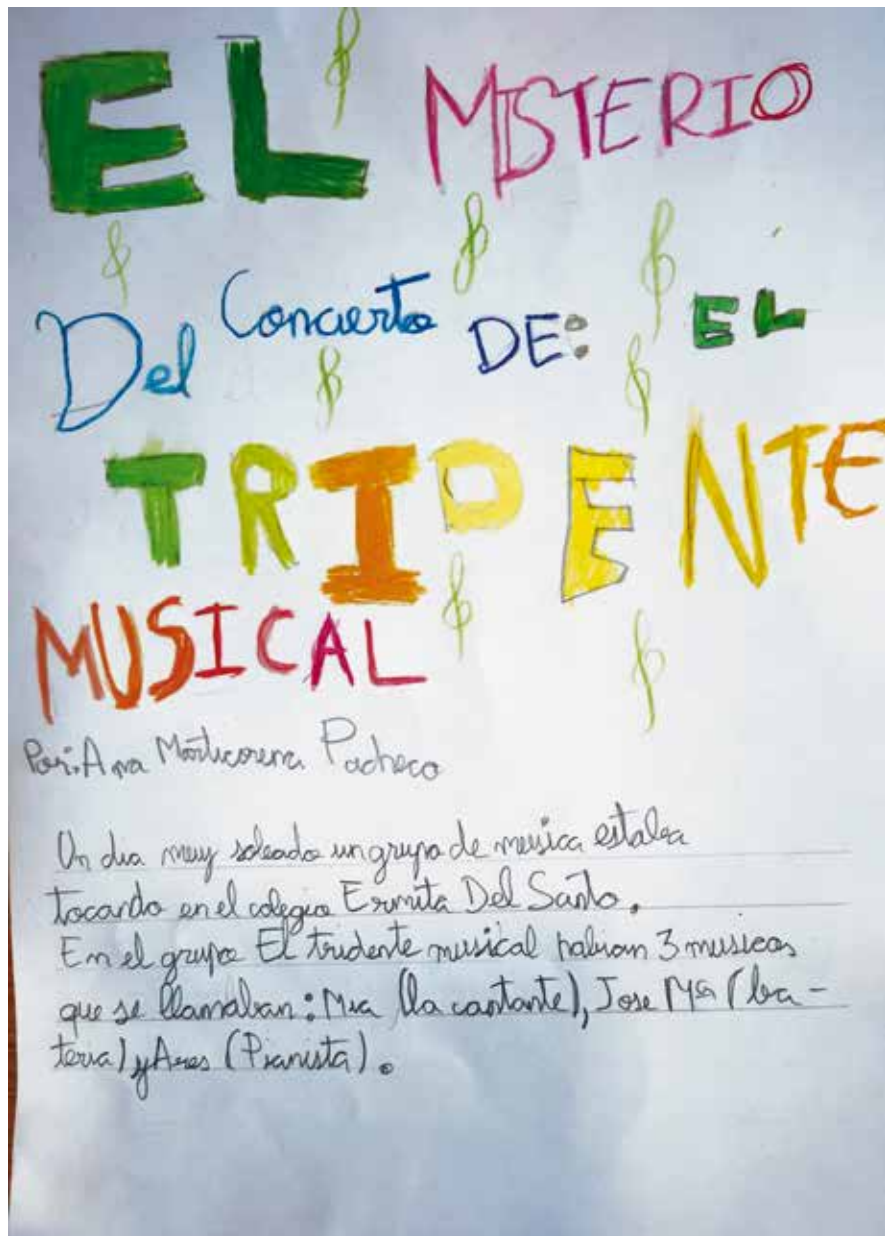 EL MISTERIO
Del Concierto DE: EL
TRIDENTE
MUSICAL
Por: Ana Marticorena Pacheco
Un dia muy soleado un grupo de musica estaba
tocando en el colegio Ermita Del Santo.
En el grupo El tridente musical habian 3 musicos
que se llamaban: Mia (la cantante), Jose Mª (ba-
teria) y Ares (Pianista).